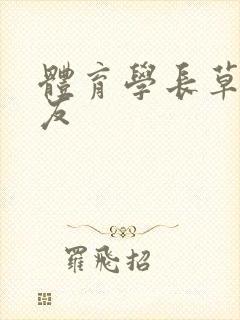 體育學長草
友
羅飛招